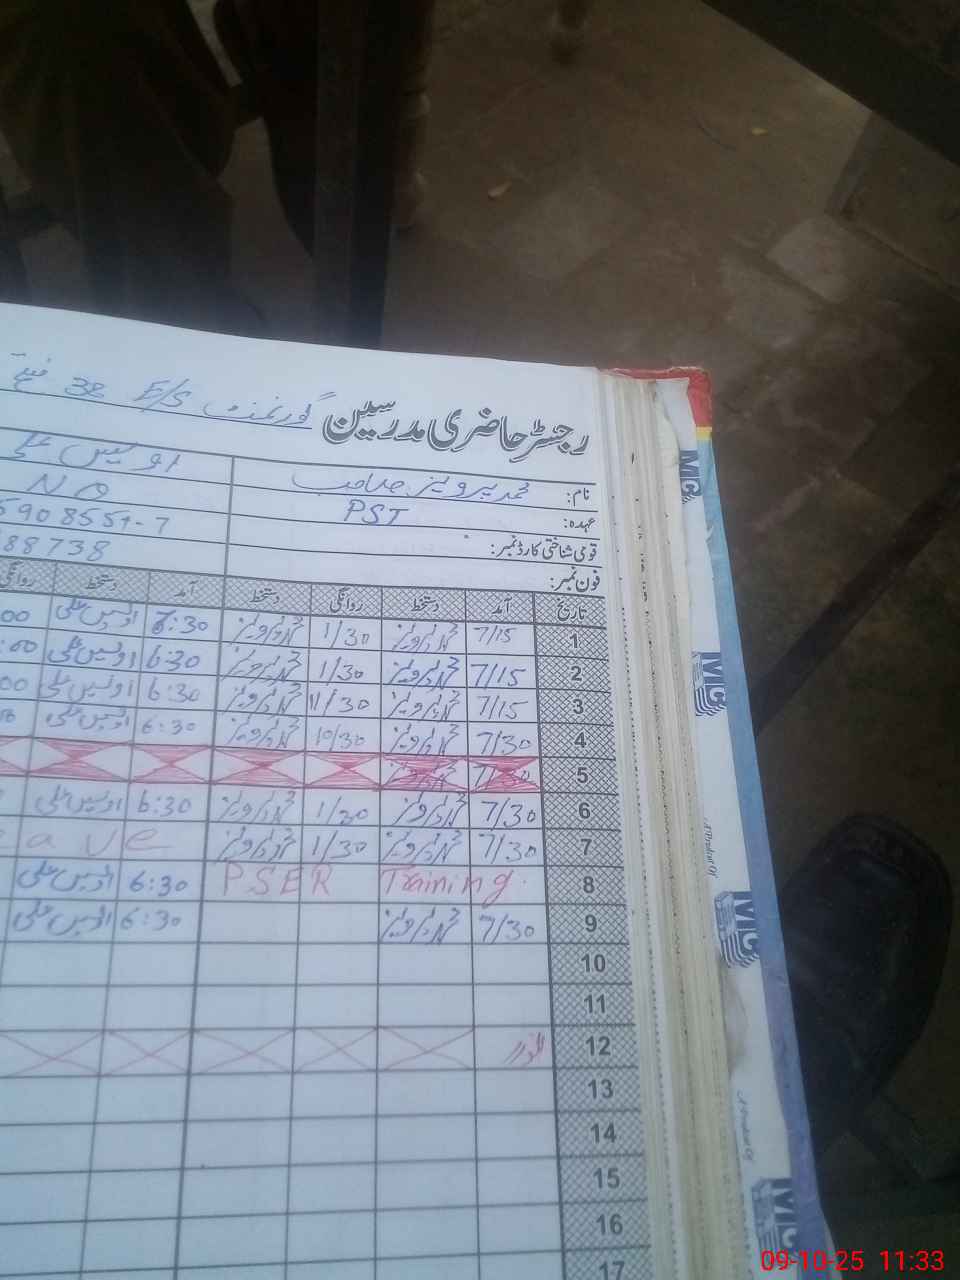 رجسٹر حاضری مدرسین گورنمنٹ E/S 38
نام: محمد پرویز صاحب اویس علی
عہدہ: PST N Q
قومی شناختی کارڈ نمبر: 5908551-7
فون نمبر: 88738
تاریخ آمد دستخط روانگی دستخط آمد دستخط روانگی
1 7/15 محمد پرویز 1/30 محمد پرویز 6:30 اویس علی :00
2 7/15 محمد پرویز 1/30 محمد پرویز 6:30 اویس علی :00
3 7/15 محمد پرویز 11/30 محمد پرویز 6:30 اویس علی 00
4 7/30 محمد پرویز 10/30 محمد پرویز 6:30 اویس علی
5 محمد پرویز
6 7/30 محمد پرویز 1/30 محمد پرویز 6:30 اویس علی
7 7/30 محمد پرویز 1/30 محمد پرویز a v e
8 PSER Training. 6:30 اویس علی
9 7/30 محمد پرویز 6:30 اویس علی
10
11
12 اتوار
13
14
15
16
17
MC
MC
MC
MC
A Product Of
A Product Of
09-10-25 11:33